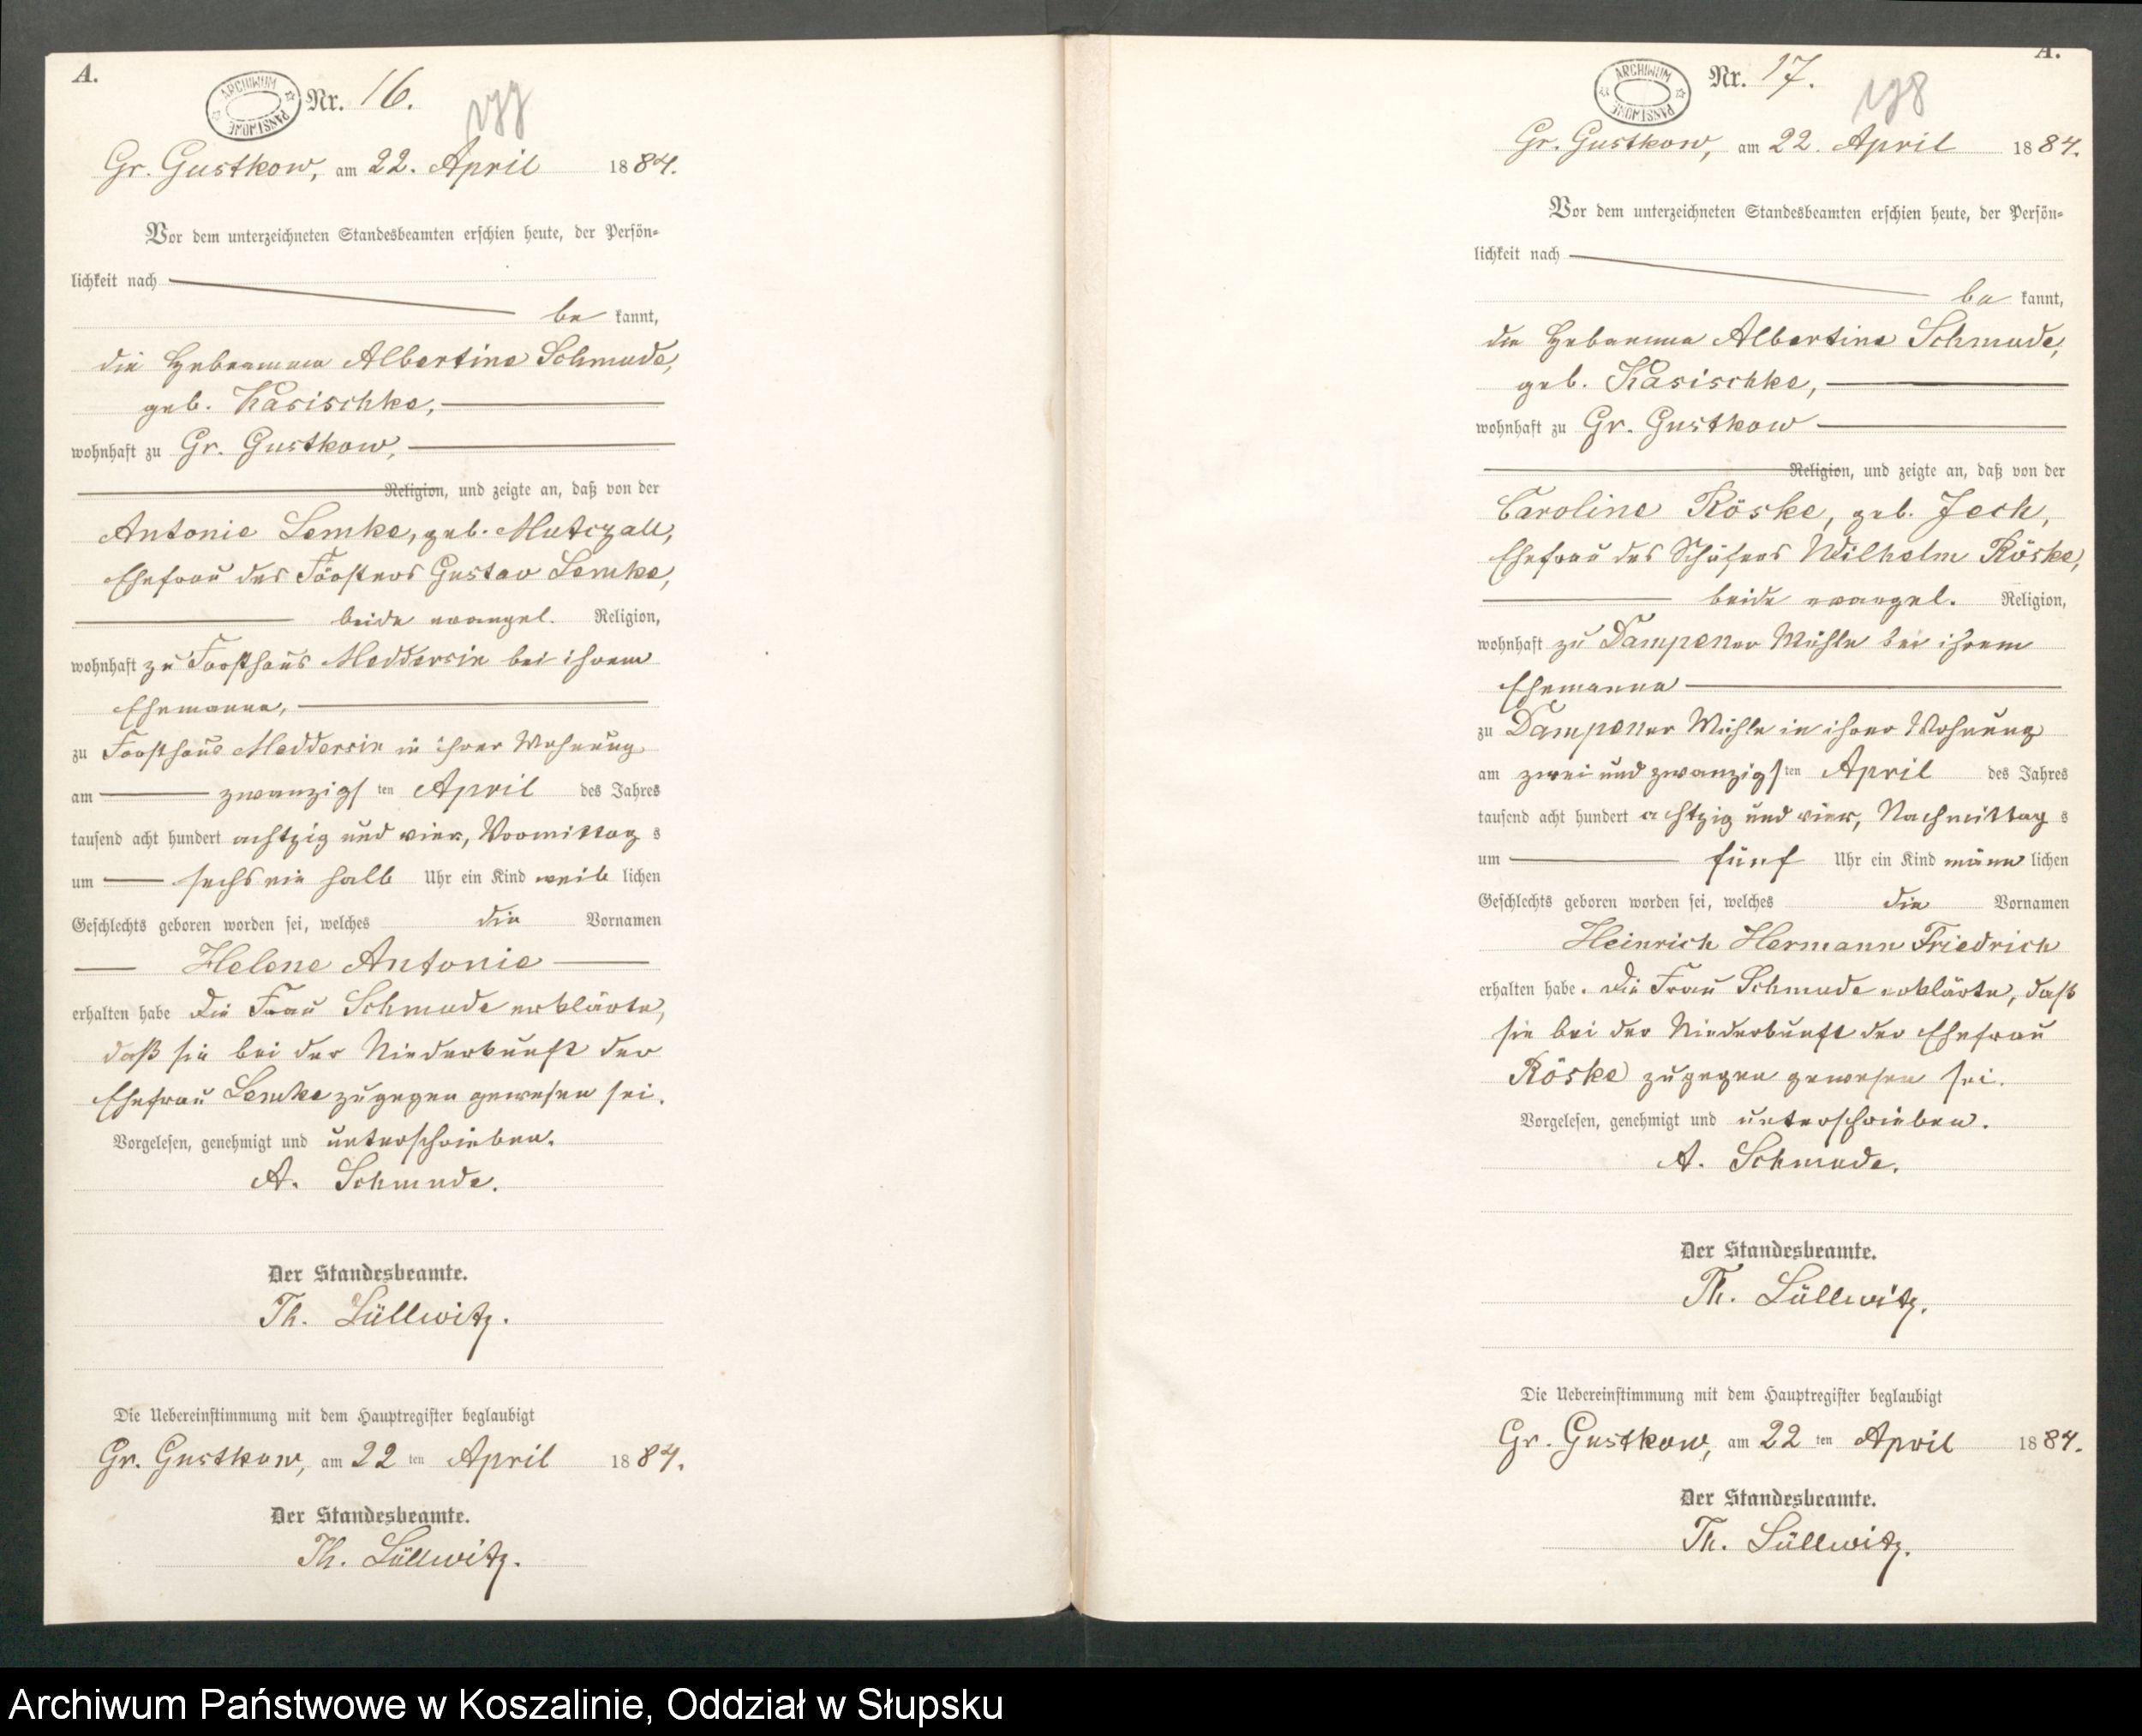 A.
ARCHIWUM PAŃSTWOWE
Nr. 16.
Gr. Gustkow, am 22. April 1884.
Vor dem unterzeichneten Standesbeamten erschien heute, der Persön-
lichkeit nach
be kannt,
die Hebamme Albertine Schmude,
geb. Kasischke,
wohnhaft zu Gr. Gustkow,
Religion, und zeigte an, daß von der
Antonie Lemke, geb. Mutczall,
Ehefrau des Försters Gustav Lemke,
beide evangel. Religion,
wohnhaft zu Forsthaus Meddersin bei ihrem
Ehemanne,
zu Forsthaus Meddersin in ihrer Wohnung
am zwanzigsten April des Jahres
tausend acht hundert achtzig und vier, Vormittags
um sechs ein halb Uhr ein Kind weiblichen
Geschlechts geboren worden sei, welches die Vornamen
Helene Antonie
erhalten habe Die Frau Schmude erklärte,
daß sie bei der Niederkunft der
Ehefrau Lemke zugegen gewesen sei.
Vorgelesen, genehmigt und unterschrieben.
A. Schmude.
Der Standesbeamte.
Th. Lüllwitz.
Die Uebereinstimmung mit dem Hauptregister beglaubigt
Gr. Gustkow, am 22 ten April 1884.
Der Standesbeamte.
Th. Lüllwitz.
A.
ARCHIWUM PAŃSTWOWE
Nr. 17.
198
Gr. Gustkow, am 22. April 1884.
Vor dem unterzeichneten Standesbeamten erschien heute, der Persön-
lichkeit nach
be kannt,
die Hebamme Albertine Schmude,
geb. Kasischke,
wohnhaft zu Gr. Gustkow
Religion, und zeigte an, daß von der
Caroline Röske, geb. Jech,
Ehefrau des Schäfers Wilhelm Röske,
beide evangel. Religion,
wohnhaft zu Dampener Mühle bei ihrem
Ehemanne
zu Dampener Mühle in ihrer Wohnung
am zwei und zwanzigsten April des Jahres
tausend acht hundert achtzig und vier, Nachmittags
um fünf Uhr ein Kind männlichen
Geschlechts geboren worden sei, welches die Vornamen
Heinrich Hermann Friedrich
erhalten habe. Die Frau Schmude erklärte, daß
sie bei der Niederkunft der Ehefrau
Röske zugegen gewesen sei.
Vorgelesen, genehmigt und unterschrieben.
A. Schmude.
Der Standesbeamte.
Th. Lüllwitz.
Die Uebereinstimmung mit dem Hauptregister beglaubigt
Gr. Gustkow, am 22 ten April 1884.
Der Standesbeamte.
Th. Lüllwitz.
Archiwum Państwowe w Koszalinie, Oddział w Słupsku